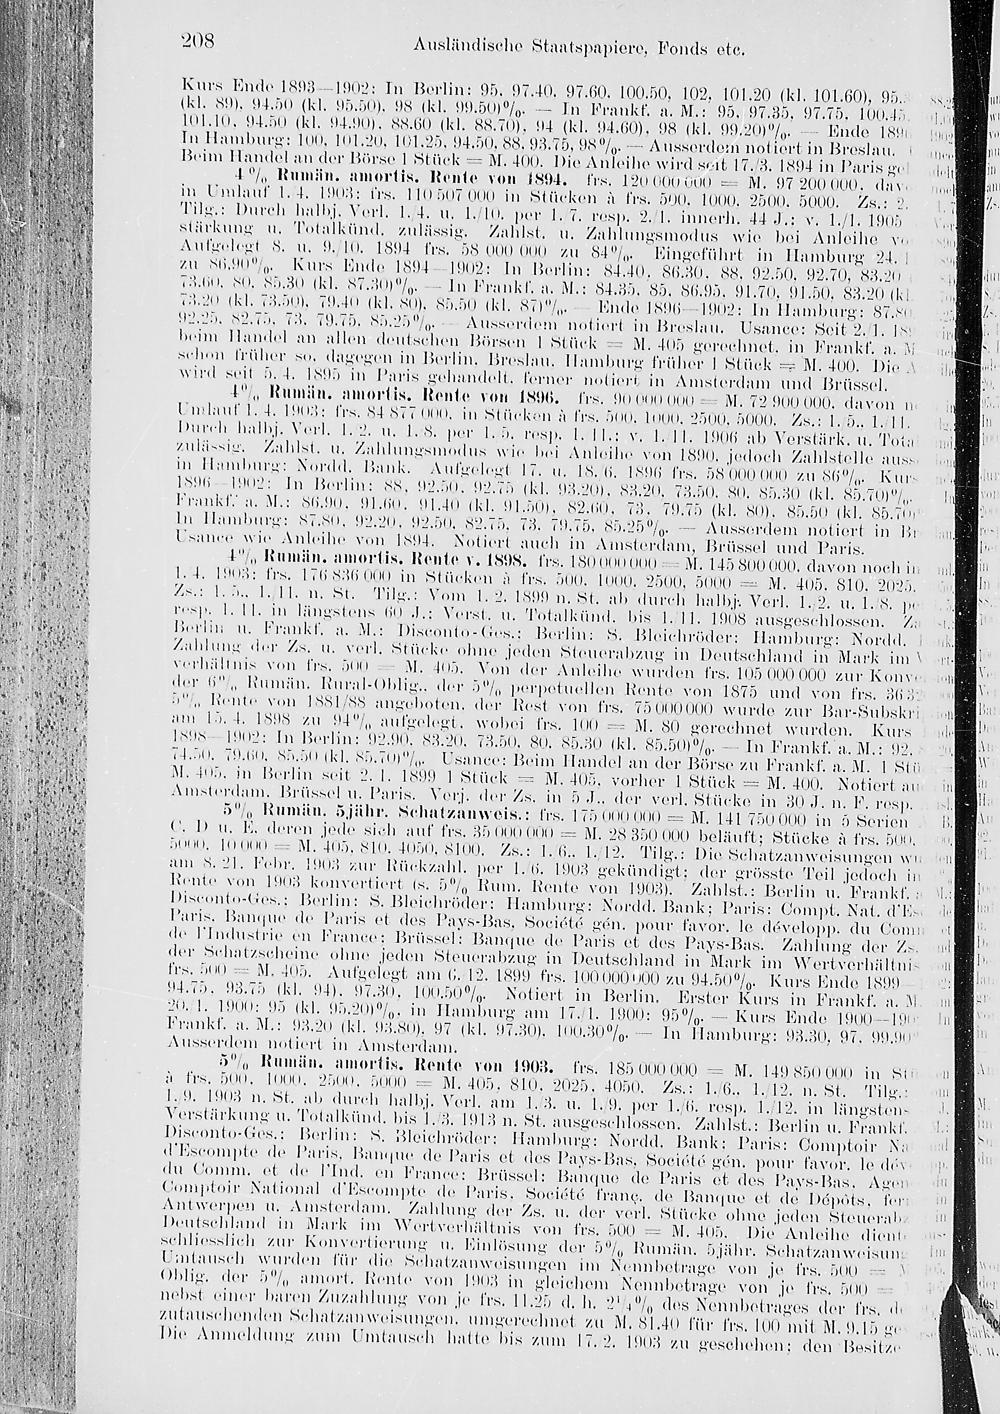 208
Ausländische Staatspapiere, Fonds etc.
Kurs Ende 1893—1902: In Berlin: 95, 97.40, 97.60, 100.50, 102, 101.20 (kl. 101.60), 95.
(kl. 89), 94.50 (kl. 95.50), 98 (kl. 99.50)%. — In Frankf. a. M.: 95, 97.35, 97.75, 100.45,
101.10, 94.50 (kl. 94.90), 88.60 (kl. 88.70), 94 (kl. 94.60), 98 (kl. 99.20)%. — Ende 189
In Hamburg: 100, 101.20, 101.25, 94.50, 88, 93.75, 98%. — Ausserdem notiert in Breslau.
Beim Handel an der Börse 1 Stück = M. 400. Die Anleihe wird seit 17./3. 1894 in Paris ge
4% Rumän. amortis. Rente von 1894. frs. 120 000 000 = M. 97 200 000, dav
in Umlauf 1. 4. 1903: frs. 110 507 000 in Stücken à frs. 500, 1000, 2500, 5000. Zs.: 2.
Tilg.: Durch halbj. Verl. 1./4. u. 1./10. per 1. 7. resp. 2./1. innerh. 44 J.; v. 1./1. 1905
stärkung u. Totalkünd. zulässig. Zahlst. u. Zahlungsmodus wie bei Anleihe v
Aufgelegt 8. u. 9./10. 1894 frs. 58 000 000 zu 84%. Eingeführt in Hamburg 24.
zu 86.90%. Kurs Ende 1894—1902: In Berlin: 84.40, 86.30, 88, 92.50, 92.70, 83.20
73.60, 80, 85.30 (kl. 87.30)%. — In Frankf. a. M.: 84.35, 85, 86.95, 91.70, 91.50, 83.20 (kl.
73.20 (kl. 73.50), 79.40 (kl. 80), 85.50 (kl. 87)%. — Ende 1896—1902: In Hamburg: 87.80
92.25, 82.75, 73, 79.75, 85.25%. Ausserdem notiert in Breslau. Usance: Seit 2./1. 18
beim Handel an allen deutschen Börsen 1 Stück = M. 405 gerechnet, in Frankf. a. M
schon früher so, dagegen in Berlin, Breslau, Hamburg früher 1 Stück = M. 400. Die A
wird seit 5. 4. 1895 in Paris gehandelt, ferner notiert in Amsterdam und Brüssel.
4% Rumän. amortis. Rente von 1896. frs. 90 000 000 = M. 72 900 000, davon n
Umlauf 1. 4. 1903: frs. 84 877 000, in Stücken à frs. 500, 1000, 2500, 5000. Zs.: 1. 5., 1./11.
Durch halbj. Verl. 1. 2. u. 1. 8. per 1. 5. resp. 1. 11.; v. 1. 11. 1906 ab Verstärk. u. Tota
zulässig. Zahlst. u. Zahlungsmodus wie bei Anleihe von 1890, jedoch Zahlstelle auss
in Hamburg: Nordd. Bank. Aufgelegt 17. u. 18. 6. 1896 frs. 58 000 000 zu 86%. Kurs
1896—1902: In Berlin: 88, 92.50, 92.75 (kl. 93.20), 83.20, 73.50, 80, 85.30 (kl. 85.70)%.
Frankf. a. M.: 86.90, 91.60, 91.40 (kl. 91.50), 82.60, 73, 79.75 (kl. 80), 85.50 (kl. 85.70)
In Hamburg: 87.80, 92.20, 92.50, 82.75, 73, 79.75, 85.25%. — Ausserdem notiert in Br
Usance wie Anleihe von 1894. Notiert auch in Amsterdam, Brüssel und Paris.
4% Rumän. amortis. Rente v. 1898. frs. 180 000 000 = M. 145 800 000, davon noch in
1. 4. 1903: frs. 176 836 000 in Stücken à frs. 500, 1000, 2500, 5000 = M. 405, 810, 2025,
Zs.: 1. 5., 1. 11. n. St. Tilg.: Vom 1. 2. 1899 n. St. ab durch halbj. Verl. 1. 2. u. 1. 8. pe
resp. 1. 11. in längstens 60 J.; Verst. u. Totalkünd. bis 1. 11. 1908 ausgeschlossen. Za
Berlin u. Frankf. a. M.: Disconto-Ges.; Berlin: S. Bleichröder; Hamburg: Nordd.
Zahlung der Zs. u. verl. Stücke ohne jeden Steuerabzug in Deutschland in Mark im
verhältnis von frs. 500 = M. 405. Von der Anleihe wurden frs. 105 000 000 zur Konve
der 6% Rumän. Rural-Oblig., der 5% perpetuellen Rente von 1875 und von frs. 36 3
5% Rente von 1881/88 angeboten, der Rest von frs. 75 000 000 wurde zur Bar-Subskri
am 15. 4. 1898 zu 94% aufgelegt, wobei frs. 100 = M. 80 gerechnet wurden. Kurs
1898—1902: In Berlin: 92.90, 83.20, 73.50, 80, 85.30 (kl. 85.50)%. — In Frankf. a. M.: 92.
74.50, 79.60, 85.50 (kl. 85.70)%. Usance: Beim Handel an der Börse zu Frankf. a. M. 1 Stü
M. 405, in Berlin seit 2. 1. 1899 1 Stück = M. 405, vorher 1 Stück = M. 400. Notiert au
Amsterdam, Brüssel u. Paris. Verj. der Zs. in 5 J., der verl. Stücke in 30 J. n. F. resp.
5% Rumän. 5jähr. Schatzanweis.: frs. 175 000 000 = M. 141 750 000 in 5 Serien
C, D u. E, deren jede sich auf frs. 35 000 000 = M. 28 350 000 beläuft; Stücke à frs. 500,
5000, 10 000 = M. 405, 810, 4050, 8100. Zs.: 1./6., 1./12. Tilg.: Die Schatzanweisungen wu
am 8. 21. Febr. 1903 zur Rückzahl. per 1./6. 1903 gekündigt; der grösste Teil jedoch in
Rente von 1903 konvertiert (s. 5% Rum. Rente von 1903). Zahlst.: Berlin u. Frankf.
Disconto-Ges.; Berlin: S. Bleichröder; Hamburg: Nordd. Bank; Paris: Compt. Nat. d'Es
Paris, Banque de Paris et des Pays-Bas, Société gén. pour favor. le développ. du Com
de l'Industrie en France; Brüssel: Banque de Paris et des Pays-Bas. Zahlung der Zs.
der Schatzscheine ohne jeden Steuerabzug in Deutschland in Mark im Wertverhältnis
frs. 500 = M. 405. Aufgelegt am 6. 12. 1899 frs. 100 000 000 zu 94.50%. Kurs Ende 1899
94.75, 93.75 (kl. 94), 97.30, 100.50%. Notiert in Berlin. Erster Kurs in Frankf. a. M.
20./1. 1900: 95 (kl. 95.20)%, in Hamburg am 17./1. 1900: 95%. — Kurs Ende 1900—190
Frankf. a. M.: 93.20 (kl. 93.80), 97 (kl. 97.30), 100.30%. — In Hamburg: 93.30, 97, 99.90
Ausserdem notiert in Amsterdam.
5% Rumän. amortis. Rente von 1903. frs. 185 000 000 = M. 149 850 000 in St
à frs. 500, 1000, 2500, 5000 = M. 405, 810, 2025, 4050. Zs.: 1./6., 1./12. n. St. Tilg.:
1./9. 1903 n. St. ab durch halbj. Verl. am 1./3. u. 1./9. per 1./6. resp. 1./12. in längstens
Verstärkung u. Totalkünd. bis 1./3. 1913 n. St. ausgeschlossen. Zahlst.: Berlin u. Frankf.
Disconto-Ges.; Berlin: S. Bleichröder; Hamburg: Nordd. Bank; Paris: Comptoir Na
d'Escompte de Paris, Banque de Paris et des Pays-Bas, Société gén. pour favor. le dév
du Comm. et de l'Ind. en France; Brüssel: Banque de Paris et des Pays-Bas, Agen
Comptoir National d'Escompte de Paris, Société franç. de Banque et de Dépôts, fer
Antwerpen u. Amsterdam. Zahlung der Zs. u. der verl. Stücke ohne jeden Steuerab
Deutschland in Mark im Wertverhältnis von frs. 500 = M. 405. Die Anleihe dient
schliesslich zur Konvertierung u. Einlösung der 5% Rumän. 5jähr. Schatzanweisun
Umtausch wurden für die Schatzanweisungen im Nennbetrage von je frs. 500 =
Oblig. der 5% amort. Rente von 1903 in gleichem Nennbetrage von je frs. 500 =
nebst einer baren Zuzahlung von je frs. 11.25 d. h. 2¼% des Nennbetrages der frs. d
zutauschenden Schatzanweisungen, umgerechnet zu M. 81.40 für frs. 100 mit M. 9.15 ge
Die Anmeldung zum Umtausch hatte bis zum 17./2. 1903 zu geschehen; den Besitze